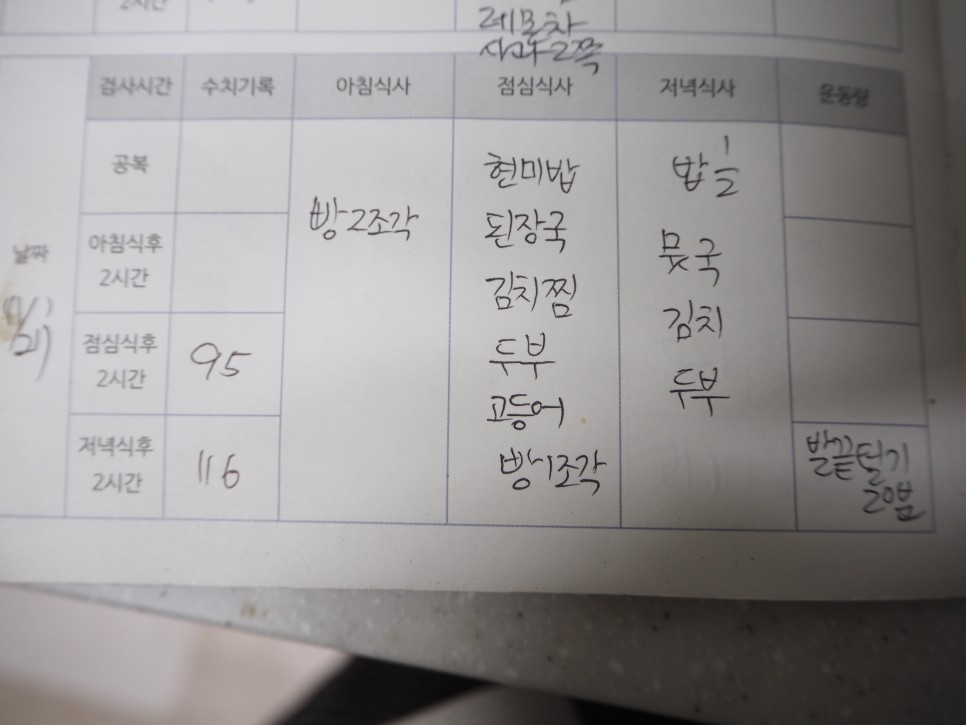 2시간
레몬차
사과2쪽
검사시간 수치기록 아침식사 점심식사 저녁식사 운동량
날짜
공복
아침식후
2시간
점심식후
2시간
95
저녁식후
2시간
116
빵2조각
현미밥
된장국
김치찜
두부
고등어
빵1조각
밥 1/2
뭇국
김치
두부
발끝털기
20분